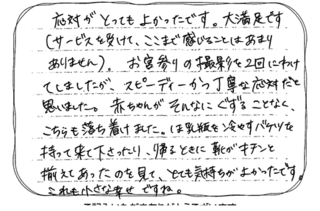 応対がとってもよかったです。大満足です
(サービスを受けて、ここまで感じることはあまり
ありません)。お宮参りの撮影を2回にわけ
てしましたが、スピーディーかつ丁寧な応対だと
思いました。赤ちゃんがそんなにぐずることなく、
こちらも落ち着けました。ほ乳瓶を冷やすバケツを
持って来て下さったり、帰るときに靴がキチンと
揃えてあったのを見て、とても気持ちがよかったです。
これも小さな幸せですね。